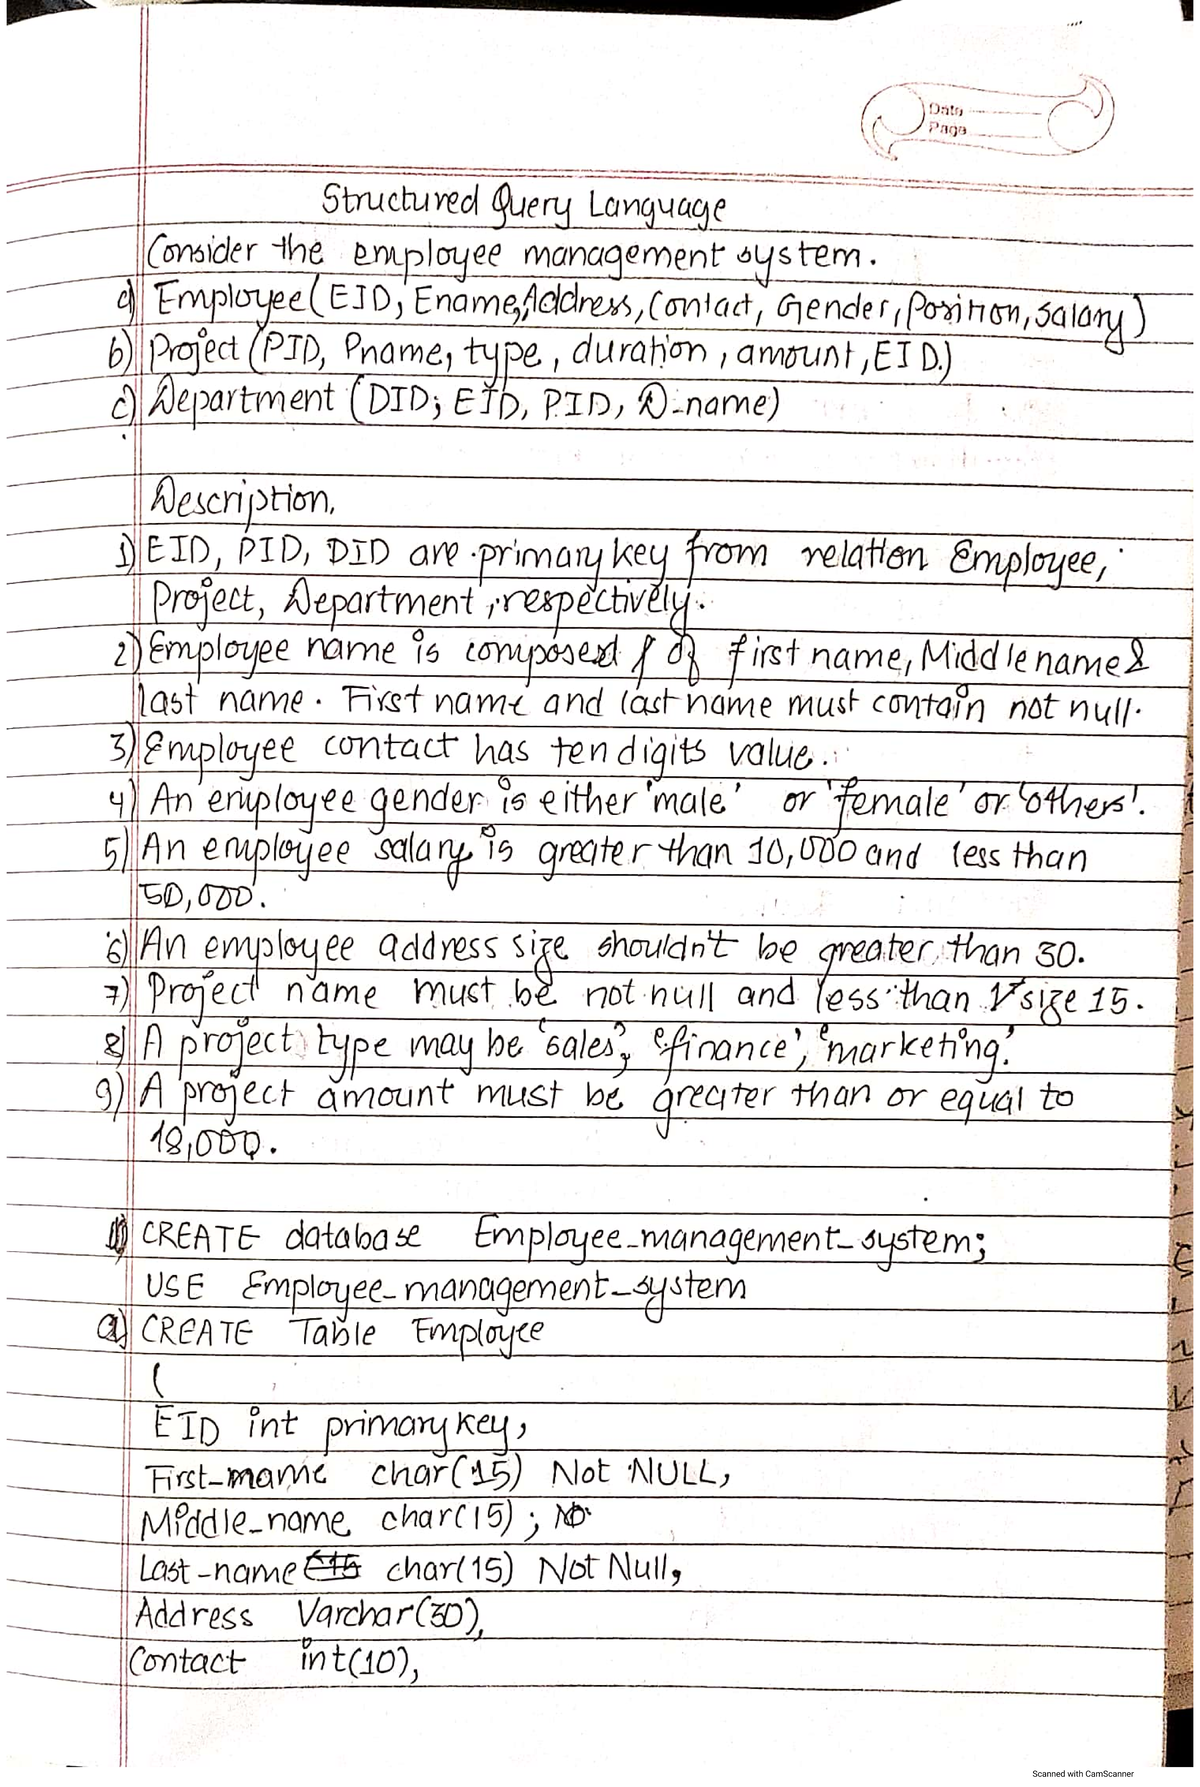 Date
Page
Structured Query Language
Consider the employee management system.
a) Employee(EID, Ename, Address, Contact, Gender, Position, salary)
b) Project (PID, Pname, type, duration, amount, EID.)
c) Department (DID; EID, PID, D-name)
Description.
1) EID, PID, DID are primary key from relation Employee,
Project, Department, respectively.
2) Employee name is composed of first name, Middle name &
last name. First name and last name must contain not null.
3) Employee contact has ten digits value.
4) An employee gender is either 'male' or 'female' or 'others'.
5) An employee salary is greater than 10,000 and less than
50,000.
6) An employee address size shouldn't be greater than 30.
7) Project name must be not null and less than size 15.
8) A project type may be 'sales', 'finance', 'marketing'.
9) A project amount must be greater than or equal to
18,000.
1) CREATE database Employee_management_system;
USE Employee_management_system
a) CREATE Table Employee
(
EID int primary key,
First_name char(15) Not NULL,
Middle_name char(15);
Last-name char(15) Not Null,
Address Varchar(30),
Contact int(10),
Scanned with CamScanner